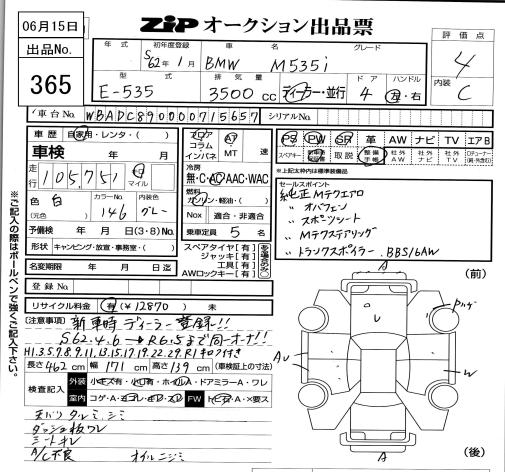 06月15日
出品No.
365
ZIP オークション出品票
年式 初年度登録 車名 グレード
S62年1月 BMW M535i
型式 排気量 ドア ハンドル
E-535 3500cc ディーラー・並行 4 左・右
評価点
4
内装
C
車台No. WBADC890000715657 シリアルNo.
車歴 自家用・レンタ・( )
車検 年 月
走行 105,751 マイル
色 白 カラーNo. 146 内装色 グレー
(元色)
予備検 年 月 日(3・8)No.
形状 キャンピング・放食・事務室・( )
フロア コラム インパネ AT MT 速
冷房
無・C・AC・AAC・WAC
燃料
ガソリン・軽油・( )
Nox 適合・非適合
乗車定員 5 名
PS PW SR 革 AW ナビ TV エアB
スペアキー 取説 整備手帳 社外AW 社外ナビ 社外TV
※上記太枠内は標準装備品
セールスポイント
純正Mテクエアロ
〃 オバフェン
〃 スポーツシート
〃 Mテクステアリング
〃 トランクスポイラー. BBS16AW
名変期限 年 月 日迄
スペアタイヤ[有]
ジャッキ[有]
工具[有]
AWロックキー[有]
登録No.
リサイクル料金 有(¥12870) 未
[注意事項] 新車時ディーラー登録!!
S62.4.6→R6.5まで同一オーナー!!
H1.3.5.7.8.9.11.13.15.17.19.22.29.R1キロク付き
長さ462cm 幅171cm 高さ139cm (車検証上の寸法)
検査記入 外装 小キズ有・小凹有・ホイルA・ドアミラーA・ワレ
室内 コゲ・A・ヨゴレ・キレ・スレ FW トビ石・A・×要ス
天バリタルミ.シミ
ダッシュ板ワレ
シートキレ
A/C不良 オイルニジミ
※ご記入の際はボールペンで強くご記入下さい。
(前)
(後)
A
U
Pハゲ
AU
W
A